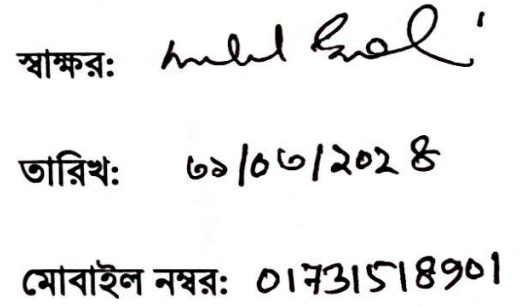 স্বাক্ষর:
তারিখ: ৩১/০৩/২০২৪
মোবাইল নম্বর: 01731518901